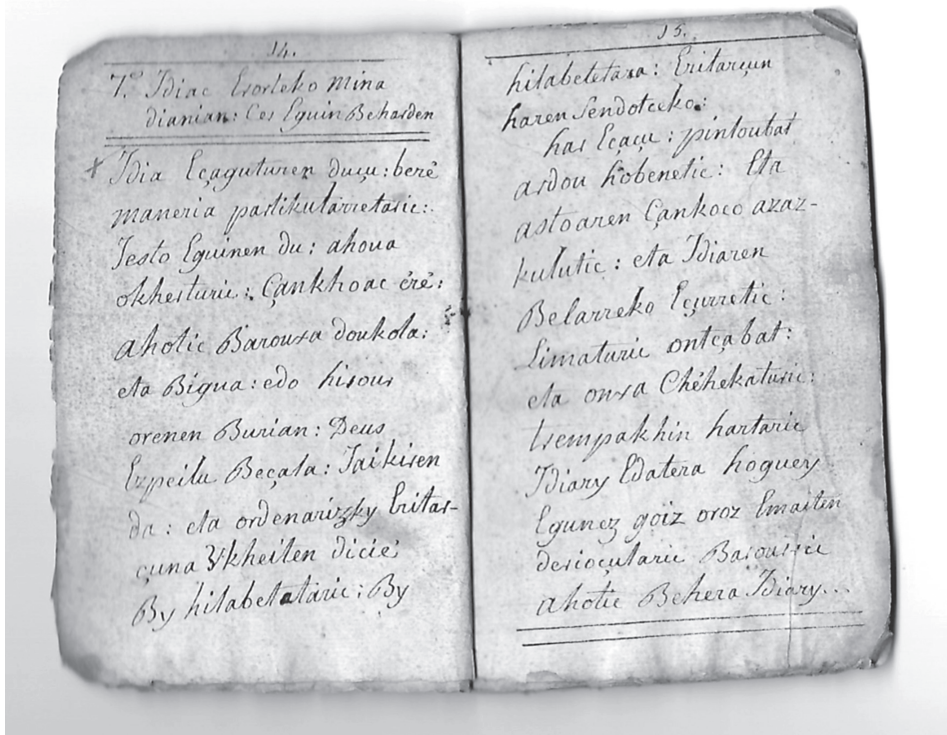 14.
7.º Idiac Erorteko mina
dianian: Cer Eguin Beharden
+ Idia Eçaguturen duçu: beré
maneria partikularretaric:
Jesto Eguinen du: ahoua
okherturic: Çankhoac éré:
ahotic Baroura doukola:
eta Bigua: edo hirour
orenen Burian: Deus
Ezpeilu Beçala: Jaikiren
da: eta ordenarizky Eritar-
çuna Ukheiten dicié
By hilabetetaric: By
15.
hilabetetara: Eritarçun
haren Sendotceko:
har Eçaçu: pintoubat
ardou hobenetic: Eta
astoaren Çankoco azaz-
kulutic: eta Idiaren
Belarreko Eçurretic:
Limaturic ontçabat:
eta onsa Chéhekaturic:
trempakhin hartaric
Idiary Edatera hoguey
Egunez goiz oroz Emaiten
derioçularic Barouric
ahotic Behera Idiary...